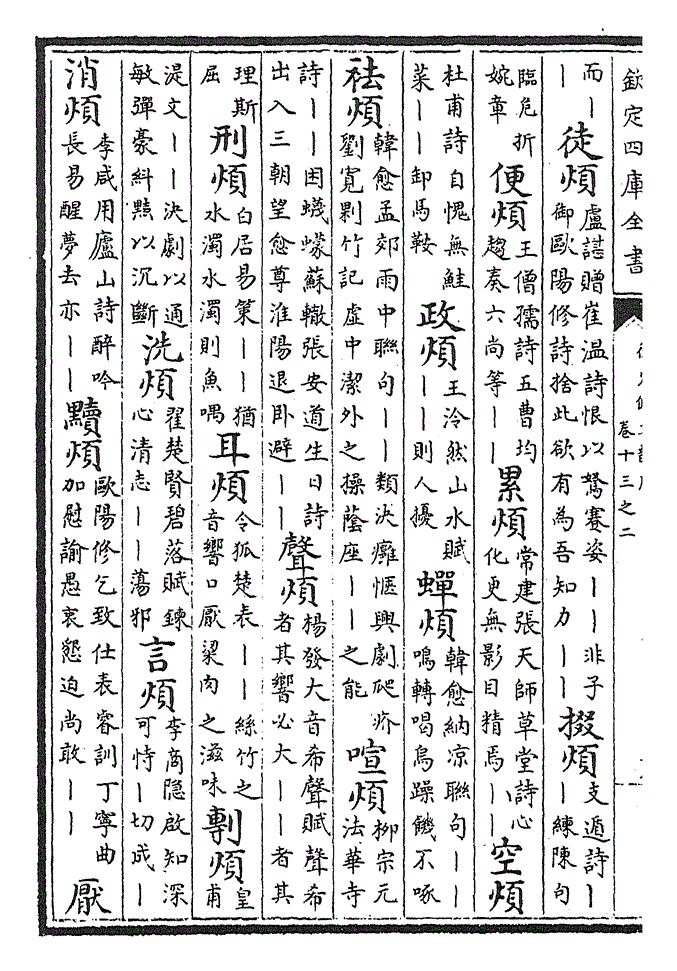 欽定四庫全書
卷十三之二
而丨丨徒煩盧諶贈崔温詩恨以駑蹇姿丨丨非子御歐陽修詩捨此欲有為吾知力丨丨掇煩支遁詩丨丨練陳句
臨危折婉章便煩王僧孺詩五曹均趨奏六尚等丨丨累煩常建張天師草堂詩心化更無影目精焉丨丨空煩
杜甫詩自愧無鮭菜丨丨卸馬鞍政煩王泠然山水賦丨丨則人擾蟬煩韓愈納凉聯句丨丨鳴轉喝烏躁饑不啄
祛煩韓愈孟郊雨中聯句丨丨類決癰愜興劇爬疥劉寛剿竹記虚中潔外之操蔭座丨丨之能喧煩柳宗元法華寺
詩丨丨困蠛蠓蘇轍張安道生日詩出入三朝望愈尊淮陽退卧避丨丨聲煩楊發大音希聲賦聲希者其響必大丨丨者其
理斯屈刑煩白居易策丨丨猶水濁水濁則魚喁耳煩令狐楚表丨丨絲竹之音響口厭粱肉之滋味剸煩皇甫
湜文丨丨決劇以通敏彈豪糾黠以沉斷洗煩翟楚賢碧落賦鍊心清志丨丨蕩邪言煩李商隱啟知深可恃丨切成丨
消煩李咸用廬山詩醉吟長易醒夢去亦丨丨黷煩歐陽修乞致仕表睿訓丁寧曲加慰諭愚衷懇迫尚敢丨丨厭